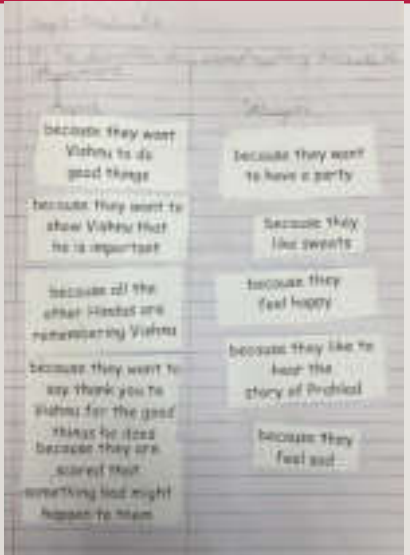 because they want
Vishnu to do
good things
because they want to
show Vishnu that
he is important
because all the
other Hindus are
remembering Vishnu
because they want to
say thank you to
Vishnu for the good
things he does
because they are
scared that
something bad might
happen to them
because they want
to have a party
because they
like sweets
because they
feel happy
because they like to
hear the
story of Prahlad
because they
feel sad